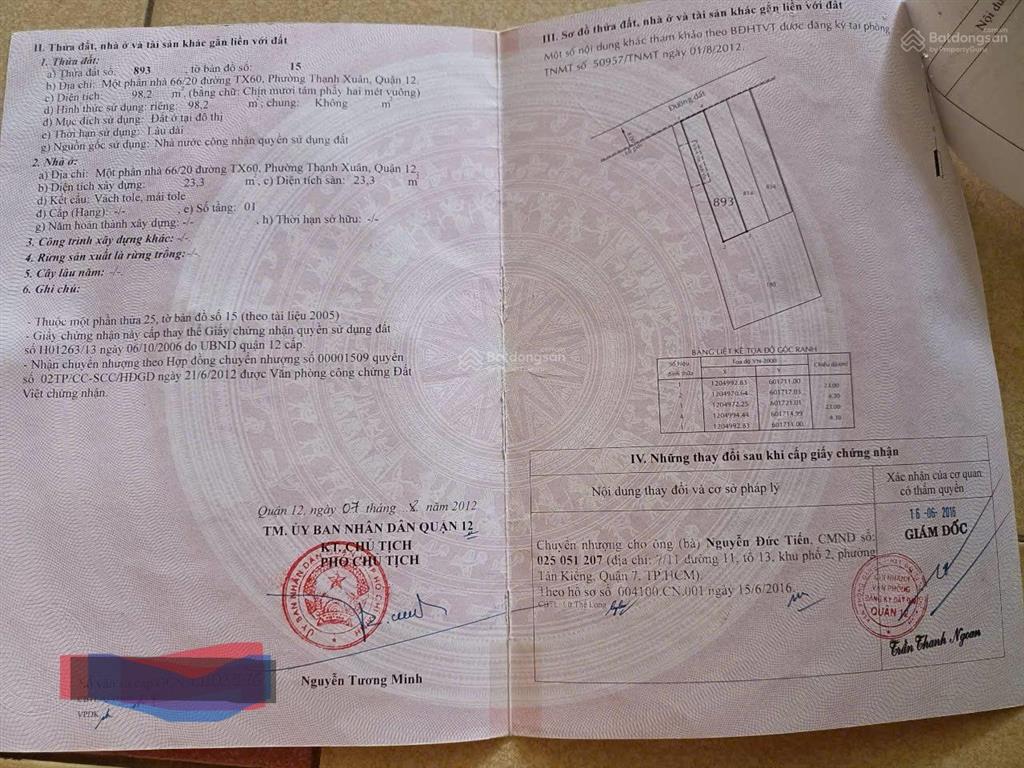 II. Thửa đất, nhà ở và tài sản khác gắn liền với đất
1. Thửa đất:
a) Thửa đất số: 893 , tờ bản đồ số: 15
b) Địa chỉ: Một phần nhà 66/20 đường TX60, Phường Thạnh Xuân, Quận 12.
c) Diện tích: 98,2 m², (bằng chữ: Chín mươi tám phẩy hai mét vuông)
d) Hình thức sử dụng: riêng: 98,2 m²; chung: Không m²
đ) Mục đích sử dụng: Đất ở tại đô thị
e) Thời hạn sử dụng: Lâu dài
g) Nguồn gốc sử dụng: Nhà nước công nhận quyền sử dụng đất
2. Nhà ở:
a) Địa chỉ: Một phần nhà 66/20 đường TX60, Phường Thạnh Xuân, Quận 12.
b) Diện tích xây dựng: 23,3 m², c) Diện tích sàn: 23,3 m²
d) Kết cấu: Vách tole, mái tole
đ) Cấp (Hạng): -/- , e) Số tầng: 01
g) Năm hoàn thành xây dựng: -/- , h) Thời hạn sở hữu: -/-
3. Công trình xây dựng khác: -/-
4. Rừng sản xuất là rừng trồng: -/-
5. Cây lâu năm: -/-
6. Ghi chú:
- Thuộc một phần thửa 25, tờ bản đồ số 15 (theo tài liệu 2005)
- Giấy chứng nhận này cấp thay thế Giấy chứng nhận quyền sử dụng đất
số H01263/13 ngày 06/10/2006 do UBND quận 12 cấp.
- Nhận chuyển nhượng theo Hợp đồng chuyển nhượng số 00001509 quyển
số 02TP/CC-SCC/HDGD ngày 21/6/2012 được Văn phòng công chứng Đất
Việt chứng nhận.
Quận 12, ngày 07 tháng 8 năm 2012
TM. ỦY BAN NHÂN DÂN QUẬN 12
KT. CHỦ TỊCH
PHÓ CHỦ TỊCH
Nguyễn Tương Minh
VPDK
III. Sơ đồ thửa đất, nhà ở và tài sản khác gắn liền với đất
Một số nội dung khác tham khảo theo BĐHTVT được đăng ký tại phòng
TNMT số 50957/TNMT ngày 01/8/2012.
Đường đất
893
BẢNG LIỆT KÊ TỌA ĐỘ GÓC RANH
Số hiệu đỉnh thửa Tọa độ VN-2000 Chiều dài(m)
X Y
1 1204992.83 601711.00
23.00
2 1204970.64 601717.05
4.30
3 1204972.25 601721.01
23.00
4 1204994.44 601714.99
4.30
1 1204992.83 601711.00
IV. Những thay đổi sau khi cấp giấy chứng nhận
Nội dung thay đổi và cơ sở pháp lý
Xác nhận của cơ quan
có thẩm quyền
Chuyển nhượng cho ông (bà) Nguyễn Đức Tiến, CMND số:
025 051 207 (địa chỉ: 7/11 đường 11, tổ 13, khu phố 2, phường
Tân Kiểng, Quận 7, TP.HCM).
Theo hồ sơ số 004100.CN.001 ngày 15/6/2016.
16-06-2016
GIÁM ĐỐC
CHI NHÁNH
VĂN PHÒNG
ĐĂNG KÝ ĐẤT ĐAI
QUẬN 12
Trần Thanh Ngoan
Batdongsan
by PropertyGuru
Batdongsan
Nội dun